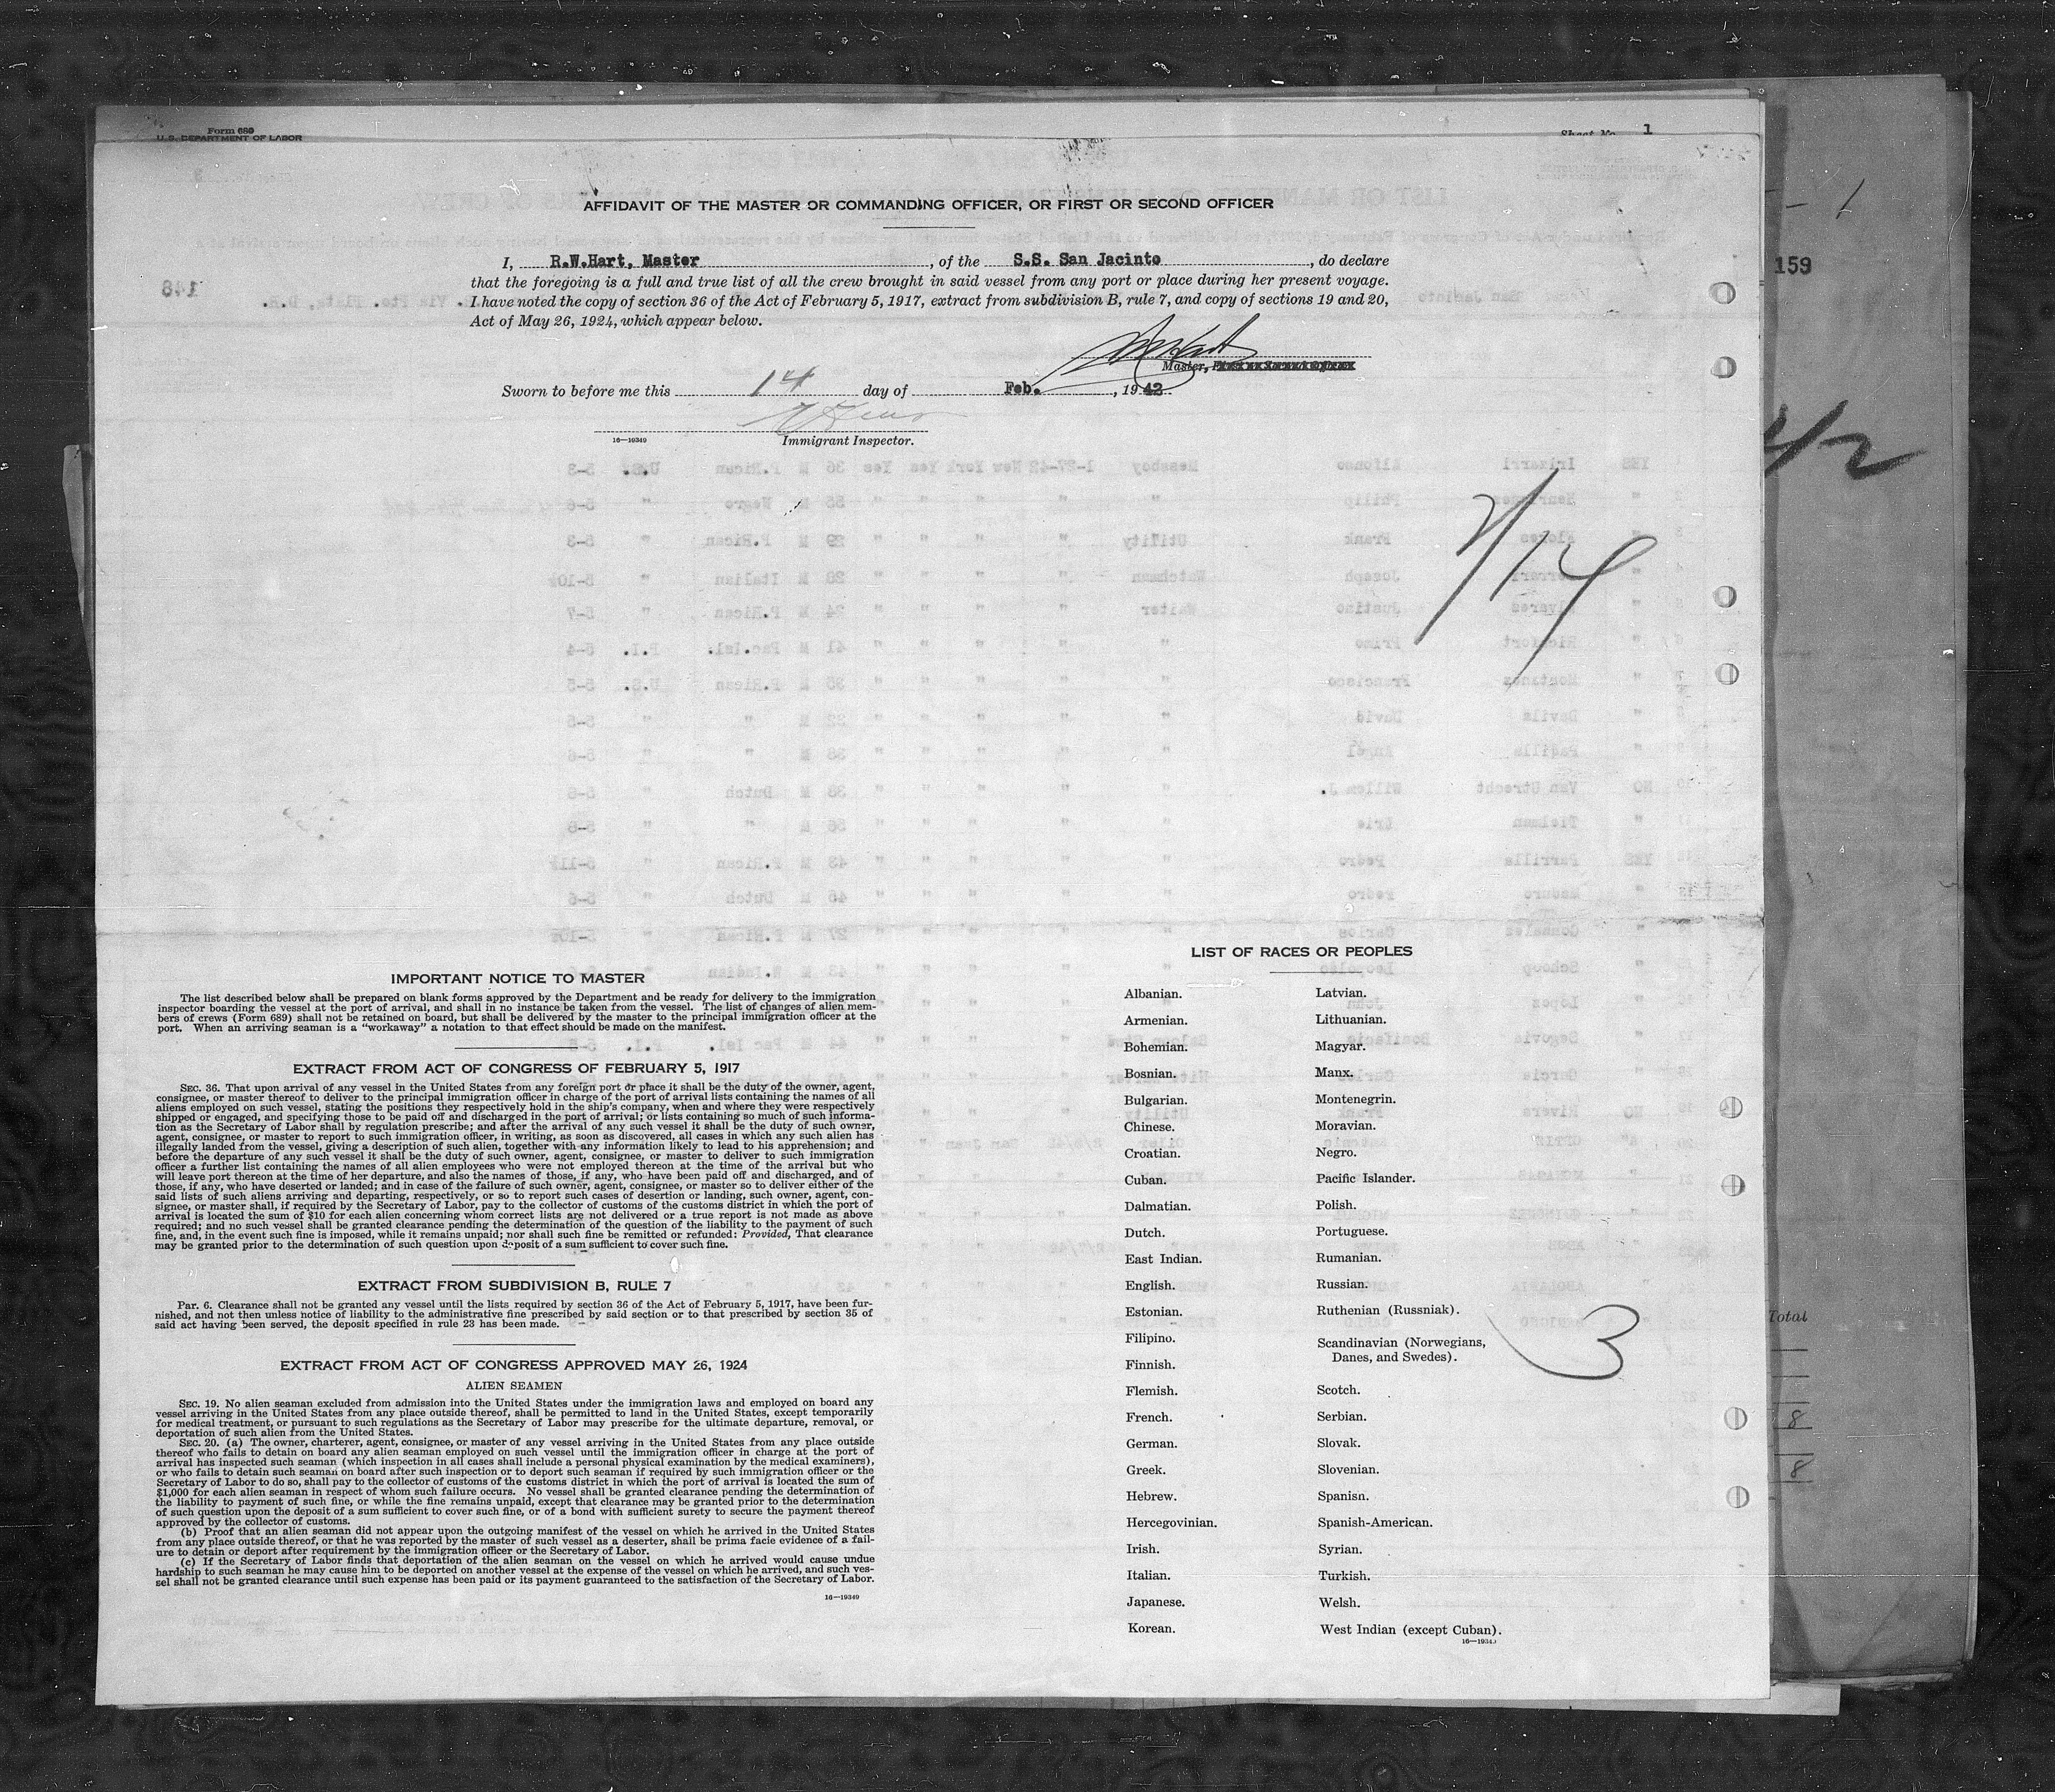 Form 689
U.S. DEPARTMENT OF LABOR
Sheet No. 1
AFFIDAVIT OF THE MASTER OR COMMANDING OFFICER, OR FIRST OR SECOND OFFICER
I, R.W.Hart, Master, of the S.S. San Jacinto, do declare
that the foregoing is a full and true list of all the crew brought in said vessel from any port or place during her present voyage.
I have noted the copy of section 36 of the Act of February 5, 1917, extract from subdivision B, rule 7, and copy of sections 19 and 20,
Act of May 26, 1924, which appear below.
Master,
Sworn to before me this 14 day of Feb., 1942
16—19349
Immigrant Inspector.
- 1
159
42
2/14
IMPORTANT NOTICE TO MASTER
The list described below shall be prepared on blank forms approved by the Department and be ready for delivery to the immigration
inspector boarding the vessel at the port of arrival, and shall in no instance be taken from the vessel. The list of changes of alien mem-
bers of crews (Form 689) shall not be retained on board, but shall be delivered by the master to the principal immigration officer at the
port. When an arriving seaman is a "workaway" a notation to that effect should be made on the manifest.
EXTRACT FROM ACT OF CONGRESS OF FEBRUARY 5, 1917
SEC. 36. That upon arrival of any vessel in the United States from any foreign port or place it shall be the duty of the owner, agent,
consignee, or master thereof to deliver to the principal immigration officer in charge of the port of arrival lists containing the names of all
aliens employed on such vessel, stating the positions they respectively hold in the ship's company, when and where they were respectively
shipped or engaged, and specifying those to be paid off and discharged in the port of arrival; or lists containing so much of such informa-
tion as the Secretary of Labor shall by regulation prescribe; and after the arrival of any such vessel it shall be the duty of such owner,
agent, consignee, or master to report to such immigration officer, in writing, as soon as discovered, all cases in which any such alien has
illegally landed from the vessel, giving a description of such alien, together with any information likely to lead to his apprehension; and
before the departure of any such vessel it shall be the duty of such owner, agent, consignee, or master to deliver to such immigration
officer a further list containing the names of all alien employees who were not employed thereon at the time of the arrival but who
will leave port thereon at the time of her departure, and also the names of those, if any, who have been paid off and discharged, and of
those, if any, who have deserted or landed; and in case of the failure of such owner, agent, consignee, or master so to deliver either of the
said lists of such aliens arriving and departing, respectively, or so to report such cases of desertion or landing, such owner, agent, con-
signee, or master shall, if required by the Secretary of Labor, pay to the collector of customs of the customs district in which the port of
arrival is located the sum of $10 for each alien concerning whom correct lists are not delivered or a true report is not made as above
required; and no such vessel shall be granted clearance pending the determination of the question of the liability to the payment of such
fine, and, in the event such fine is imposed, while it remains unpaid; nor shall such fine be remitted or refunded: Provided, That clearance
may be granted prior to the determination of such question upon deposit of a sum sufficient to cover such fine.
EXTRACT FROM SUBDIVISION B, RULE 7
Par. 6. Clearance shall not be granted any vessel until the lists required by section 36 of the Act of February 5, 1917, have been fur-
nished, and not then unless notice of liability to the administrative fine prescribed by said section or to that prescribed by section 35 of
said act having been served, the deposit specified in rule 23 has been made.
EXTRACT FROM ACT OF CONGRESS APPROVED MAY 26, 1924
ALIEN SEAMEN
SEC. 19. No alien seaman excluded from admission into the United States under the immigration laws and employed on board any
vessel arriving in the United States from any place outside thereof, shall be permitted to land in the United States, except temporarily
for medical treatment, or pursuant to such regulations as the Secretary of Labor may prescribe for the ultimate departure, removal, or
deportation of such alien from the United States.
SEC. 20. (a) The owner, charterer, agent, consignee, or master of any vessel arriving in the United States from any place outside
thereof who fails to detain on board any alien seaman employed on such vessel until the immigration officer in charge at the port of
arrival has inspected such seaman (which inspection in all cases shall include a personal physical examination by the medical examiners),
or who fails to detain such seaman on board after such inspection or to deport such seaman if required by such immigration officer or the
Secretary of Labor to do so, shall pay to the collector of customs of the customs district in which the port of arrival is located the sum of
$1,000 for each alien seaman in respect of whom such failure occurs. No vessel shall be granted clearance pending the determination of
the liability to payment of such fine, or while the fine remains unpaid, except that clearance may be granted prior to the determination
of such question upon the deposit of a sum sufficient to cover such fine, or of a bond with sufficient surety to secure the payment thereof
approved by the collector of customs.
(b) Proof that an alien seaman did not appear upon the outgoing manifest of the vessel on which he arrived in the United States
from any place outside thereof, or that he was reported by the master of such vessel as a deserter, shall be prima facie evidence of a fail-
ure to detain or deport after requirement by the immigration officer or the Secretary of Labor.
(c) If the Secretary of Labor finds that deportation of the alien seaman on the vessel on which he arrived would cause undue
hardship to such seaman he may cause him to be deported on another vessel at the expense of the vessel on which he arrived, and such ves-
sel shall not be granted clearance until such expense has been paid or its payment guaranteed to the satisfaction of the Secretary of Labor.
16—19349
LIST OF RACES OR PEOPLES
Albanian.
Armenian.
Bohemian.
Bosnian.
Bulgarian.
Chinese.
Croatian.
Cuban.
Dalmatian.
Dutch.
East Indian.
English.
Estonian.
Filipino.
Finnish.
Flemish.
French.
German.
Greek.
Hebrew.
Hercegovinian.
Irish.
Italian.
Japanese.
Korean.
Latvian.
Lithuanian.
Magyar.
Manx.
Montenegrin.
Moravian.
Negro.
Pacific Islander.
Polish.
Portuguese.
Rumanian.
Russian.
Ruthenian (Russniak).
Scandinavian (Norwegians,
Danes, and Swedes).
Scotch.
Serbian.
Slovak.
Slovenian.
Spanish.
Spanish-American.
Syrian.
Turkish.
Welsh.
West Indian (except Cuban).
3
Total
8
8